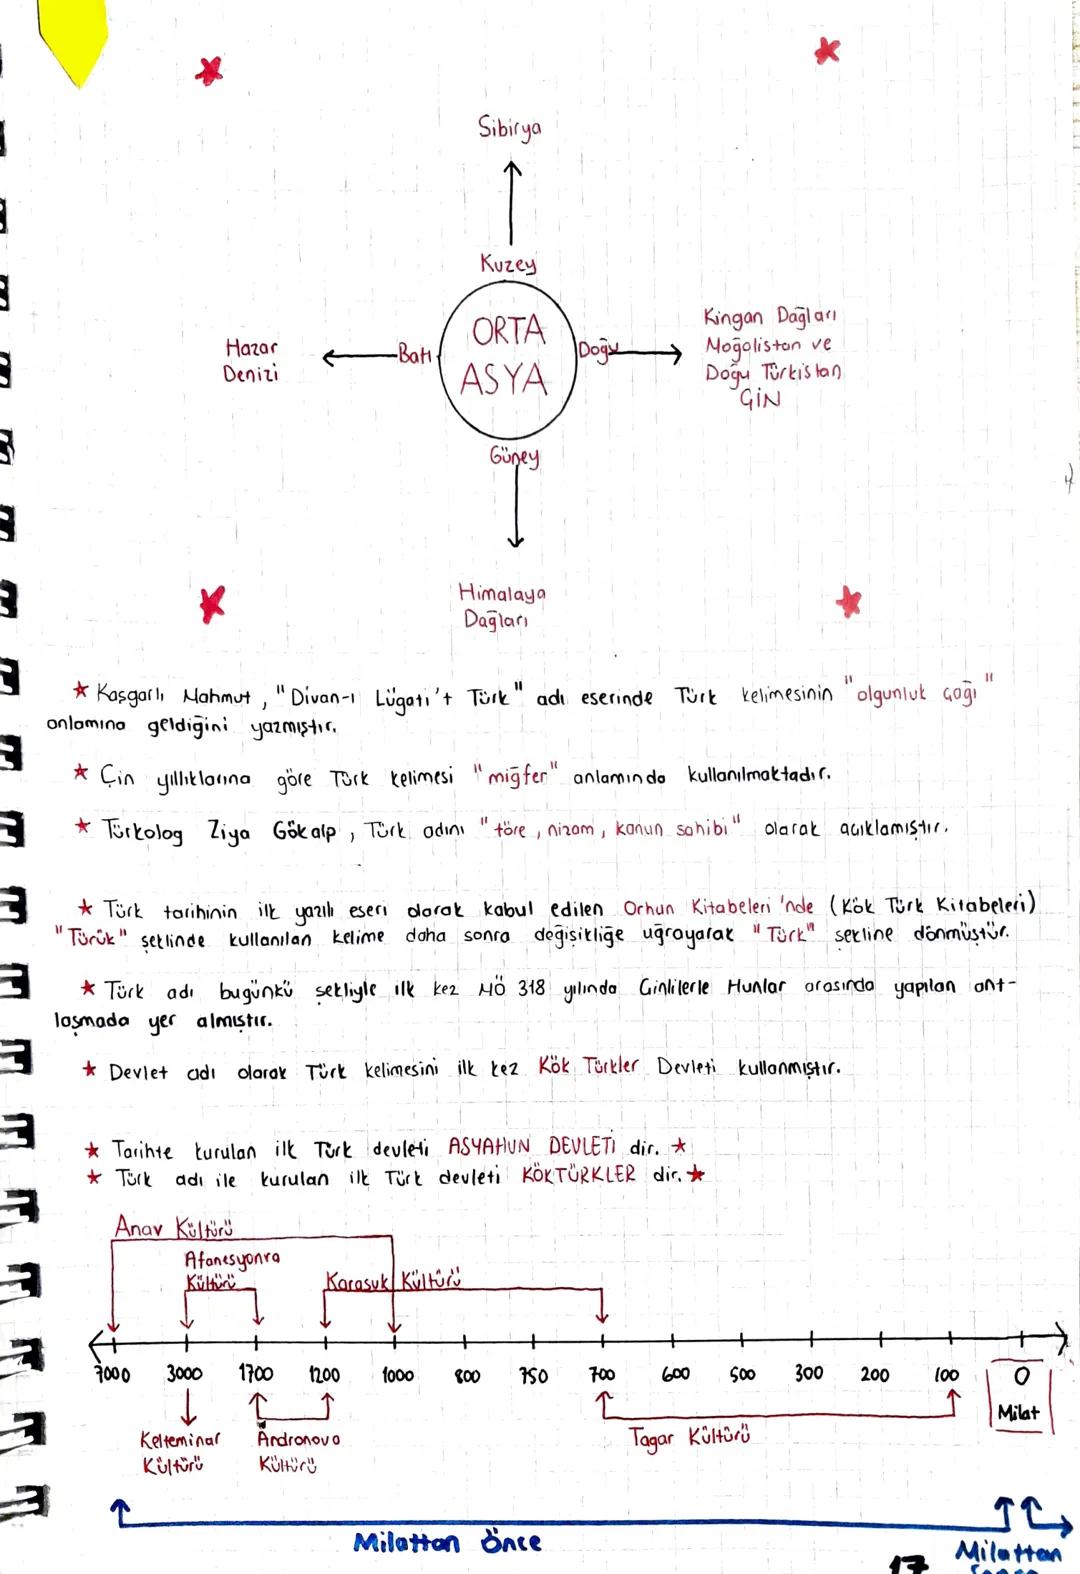 Sibirya
Kuzey
ORTA
ASYA
Batı
Hazar
Denizi
Doğu
Kingan Dağları
Moğolistan ve
Doğu Türkistan
ÇİN
Güney
Himalaya
Dağları
★ Kaşgarlı Mahmut, "Divan-ı Lügati't Türk" adı eserinde Türk kelimesinin "olgunluk çağı"
anlamına geldiğini yazmıştır.
★ Çin yıllıklarına göre Türk kelimesi "miğfer" anlamında kullanılmaktadır.
★ Türkolog Ziya Gökalp, Türk adını "töre, nizam, kanun sahibi" olarak açıklamıştır.
★ Türk tarihinin ilk yazılı eseri olarak kabul edilen Orhun Kitabeleri'nde (Kök Türk Kitabeleri)
"Türük" şeklinde kullanılan kelime daha sonra değişikliğe uğrayarak "Türk" şekline dönmüştür.
★ Türk adı bugünkü şekliyle ilk kez MÖ 318 yılında Çinlilerle Hunlar arasında yapılan ant-
laşmada yer almıştır.
★ Devlet adı olarak Türk kelimesini ilk kez Kök Türkler Devleti kullanmıştır.
★ Tarihte kurulan ilk Türk devleti ASYAHUN DEVLETİ dir. ★
★ Türk adı ile kurulan ilk Türk devleti KÖKTÜRKLER dir. ★
Anav Kültürü
Afanesyonra
Kültürü
Karasuk Kültürü
7000 3000 1700 1200 1000 800 750 700 600 500 300 200 100 0
Milat
Kelteminar
Kültürü
Andronovo
Kültürü
Tagar Kültürü
Milattan Önce
Milattan
17